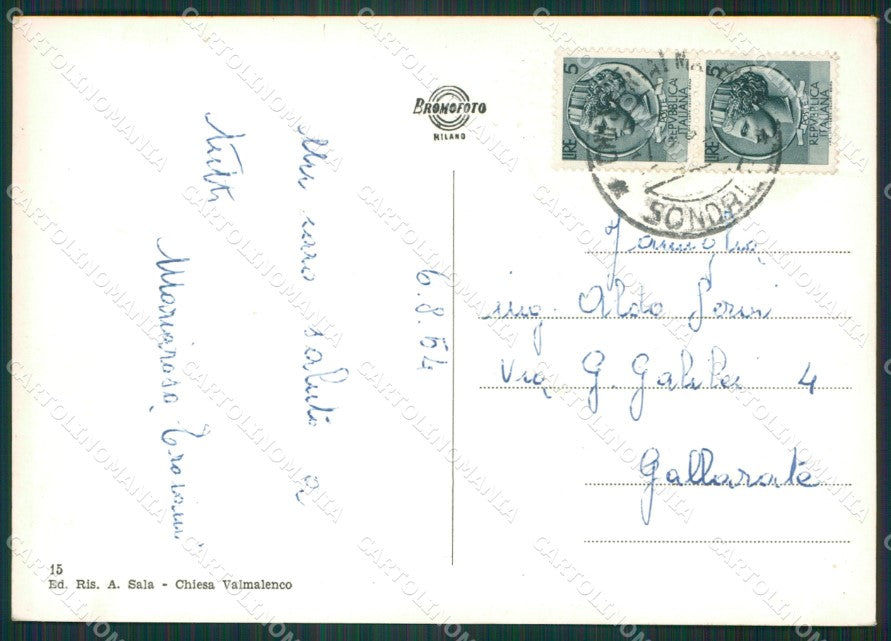 BROMOFOTO
MILANO
5 LIRE
POSTE
REPUBBLICA
ITALIANA
5 LIRE
POSTE
REPUBBLICA
ITALIANA
SONDRI
6.8.54
saluti a
tutti
Mariarosa
Famiglia
ing. Aldo
Via G. Galilei 4
Gallarate
15
Ed. Ris. A. Sala - Chiesa Valmalenco
CARTOLINOMANIA